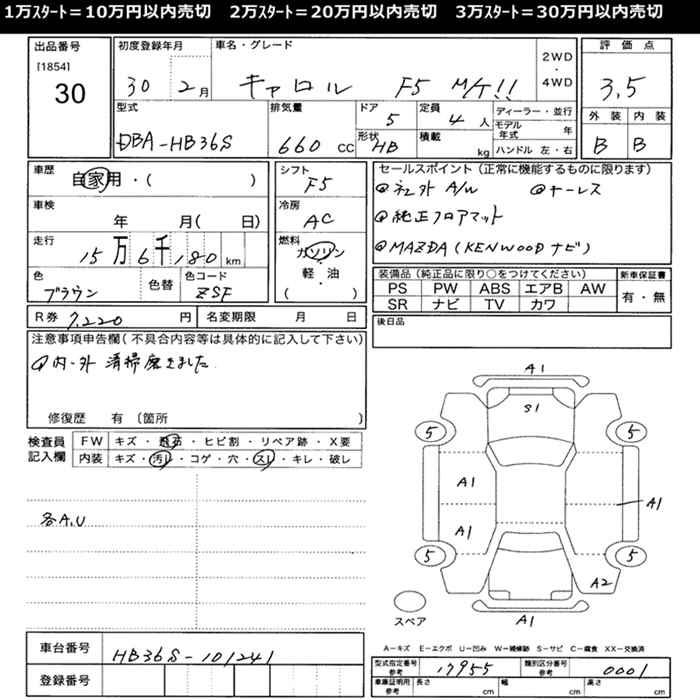 1万ｽﾀｰﾄ＝10万円以内売切　2万ｽﾀｰﾄ＝20万円以内売切　3万ｽﾀｰﾄ＝30万円以内売切
出品番号
[1854]
30
初度登録年月
30 2月
車名・グレード
キャロル F5 M/T!!
2WD・4WD
評価点
3.5
型式
DBA-HB36S
排気量
660 CC
ドア
5
定員
4人
形状
HB
積載
kg
ディーラー・並行
モデル年式 年
ハンドル 左・右
外装 内装
B B
車歴
自家用・( )
シフト
F5
車検
年 月( 日)
冷房
AC
走行
15万6千180km
燃料
ガソリン・軽・油
( )
色
ブラウン
色替
色コード
ZSF
R券 7,220円
名変期限 月 日
セールスポイント(正常に機能するものに限ります)
@社外A/W @キーレス
@純正フロアマット
@MAZDA(KENWOODナビ)
装備品(純正品に限り○をつけてください)
PS PW ABS エアB AW
SR ナビ TV カワ
新車保証書
有・無
後日品
注意事項申告欄(不具合内容等は具体的に記入して下さい)
@内・外 清掃磨きました
修復歴 有〔箇所 〕
検査員記入欄
FW キズ・飛石・ヒビ割・リペア跡・X要
内装 キズ・汚レ・コゲ・穴・スレ・キレ・破レ
各A,U
A1
S1
5 5
A1 A1
A1
5 5
A2
スペア
A1
A－キズ E－エクボ U－凹み W－補修跡 S－サビ C－腐食 XX－交換済
車台番号 HB36S-101241
登録番号
型式指定番号 参考 17955 類別区分番号 参考 0001
車庫証明用 参考 長さ cm 幅 cm 高さ cm